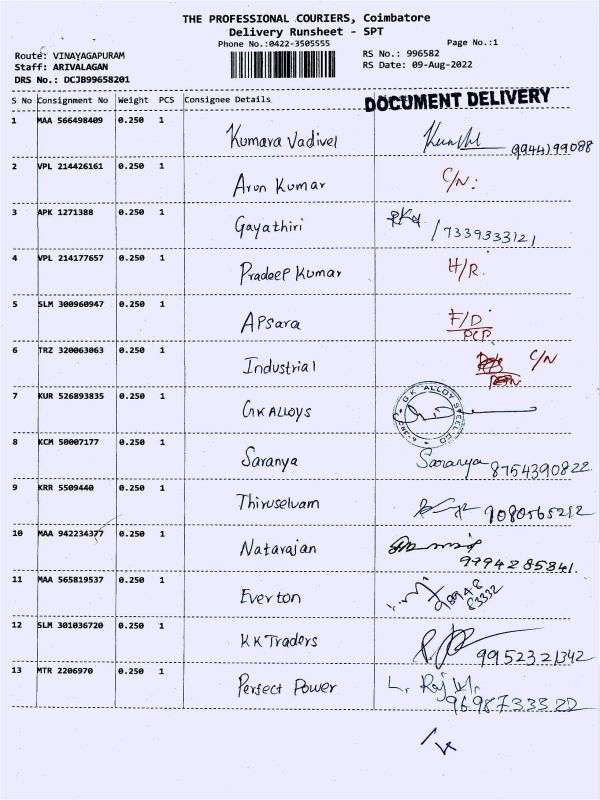 THE PROFESSIONAL COURIERS, Coimbatore
Delivery Runsheet - SPT
Phone No.:0422-3505555
Page No.:1
Route: VINAYAGAPURAM
RS No.: 996582
Staff: ARIVALAGAN
RS Date: 09-Aug-2022
DRS No.: DCJB99658201
S No Consignment No Weight PCS Consignee Details DOCUMENT DELIVERY
1 MAA 566498409 0.250 1 Kumara Vadivel 9944199088
2 VPL 214426161 0.250 1 Arun Kumar C/N:
3 APK 1271388 0.250 1 Gayathiri /7339333121
4 VPL 214177657 0.250 1 Pradeep Kumar H/R.
5 SLM 300960947 0.250 1 Apsara F/D
PCP
6 TRZ 320063063 0.250 1 Industrial C/N
7 KUR 526893835 0.250 1 GK ALLOYS G K ALLOY STEEL CO
8 KCM 50007177 0.250 1 Saranya Saranya 8754390822
9 KRR 5509440 0.250 1 Thiruselvam 9080565212
10 MAA 942234377 0.250 1 Natarajan 9994285841
11 MAA 565819537 0.250 1 Everton 98948
83332
12 SLM 301036720 0.250 1 KK Traders 9952321342
13 MTR 2206970 0.250 1 Perfect Power L. Raj
9698733322